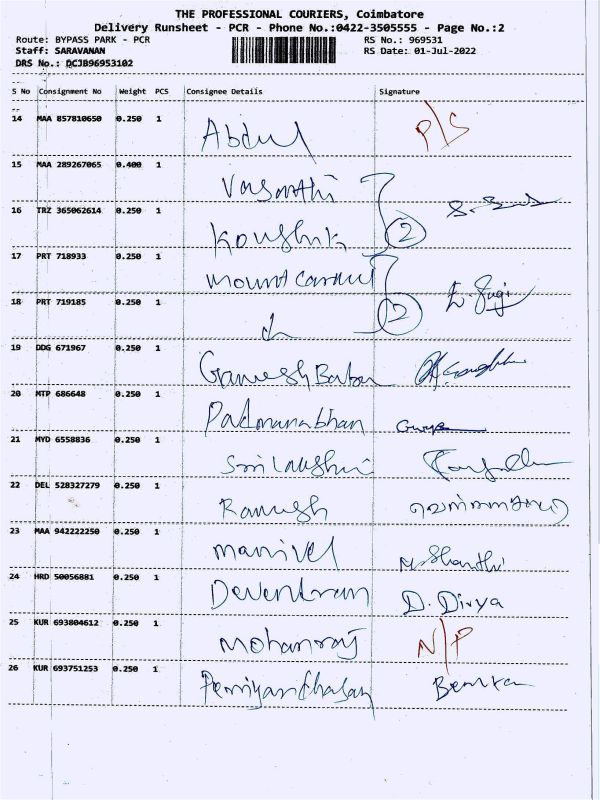 THE PROFESSIONAL COURIERS, Coimbatore
Delivery Runsheet - PCR - Phone No.:0422-3505555 - Page No.:2
Route: BYPASS PARK - PCR RS No.: 969531
Staff: SARAVANAN RS Date: 01-Jul-2022
DRS No.: DCJB96953102
S No Consignment No Weight PCS Consignee Details Signature
14 MAA 857810650 0.250 1 Abdul P/S
15 MAA 289267065 0.400 1 Vasanthi
16 TRZ 365062614 0.250 1 Koushik 2
17 PRT 718933 0.250 1 Mount Carmel
18 PRT 719185 0.250 1 2
19 DDG 671967 0.250 1 Ganesh Babu
20 MTP 686648 0.250 1 Padmanabhan
21 MYD 6558836 0.250 1
22 DEL 528327279 0.250 1 Ramesh
23 MAA 942222250 0.250 1 Manivel M. Shanthi
24 HRD 50056881 0.250 1 Devendran D. Divya
25 KUR 693804612 0.250 1 Mohanraj N/P
26 KUR 693751253 0.250 1